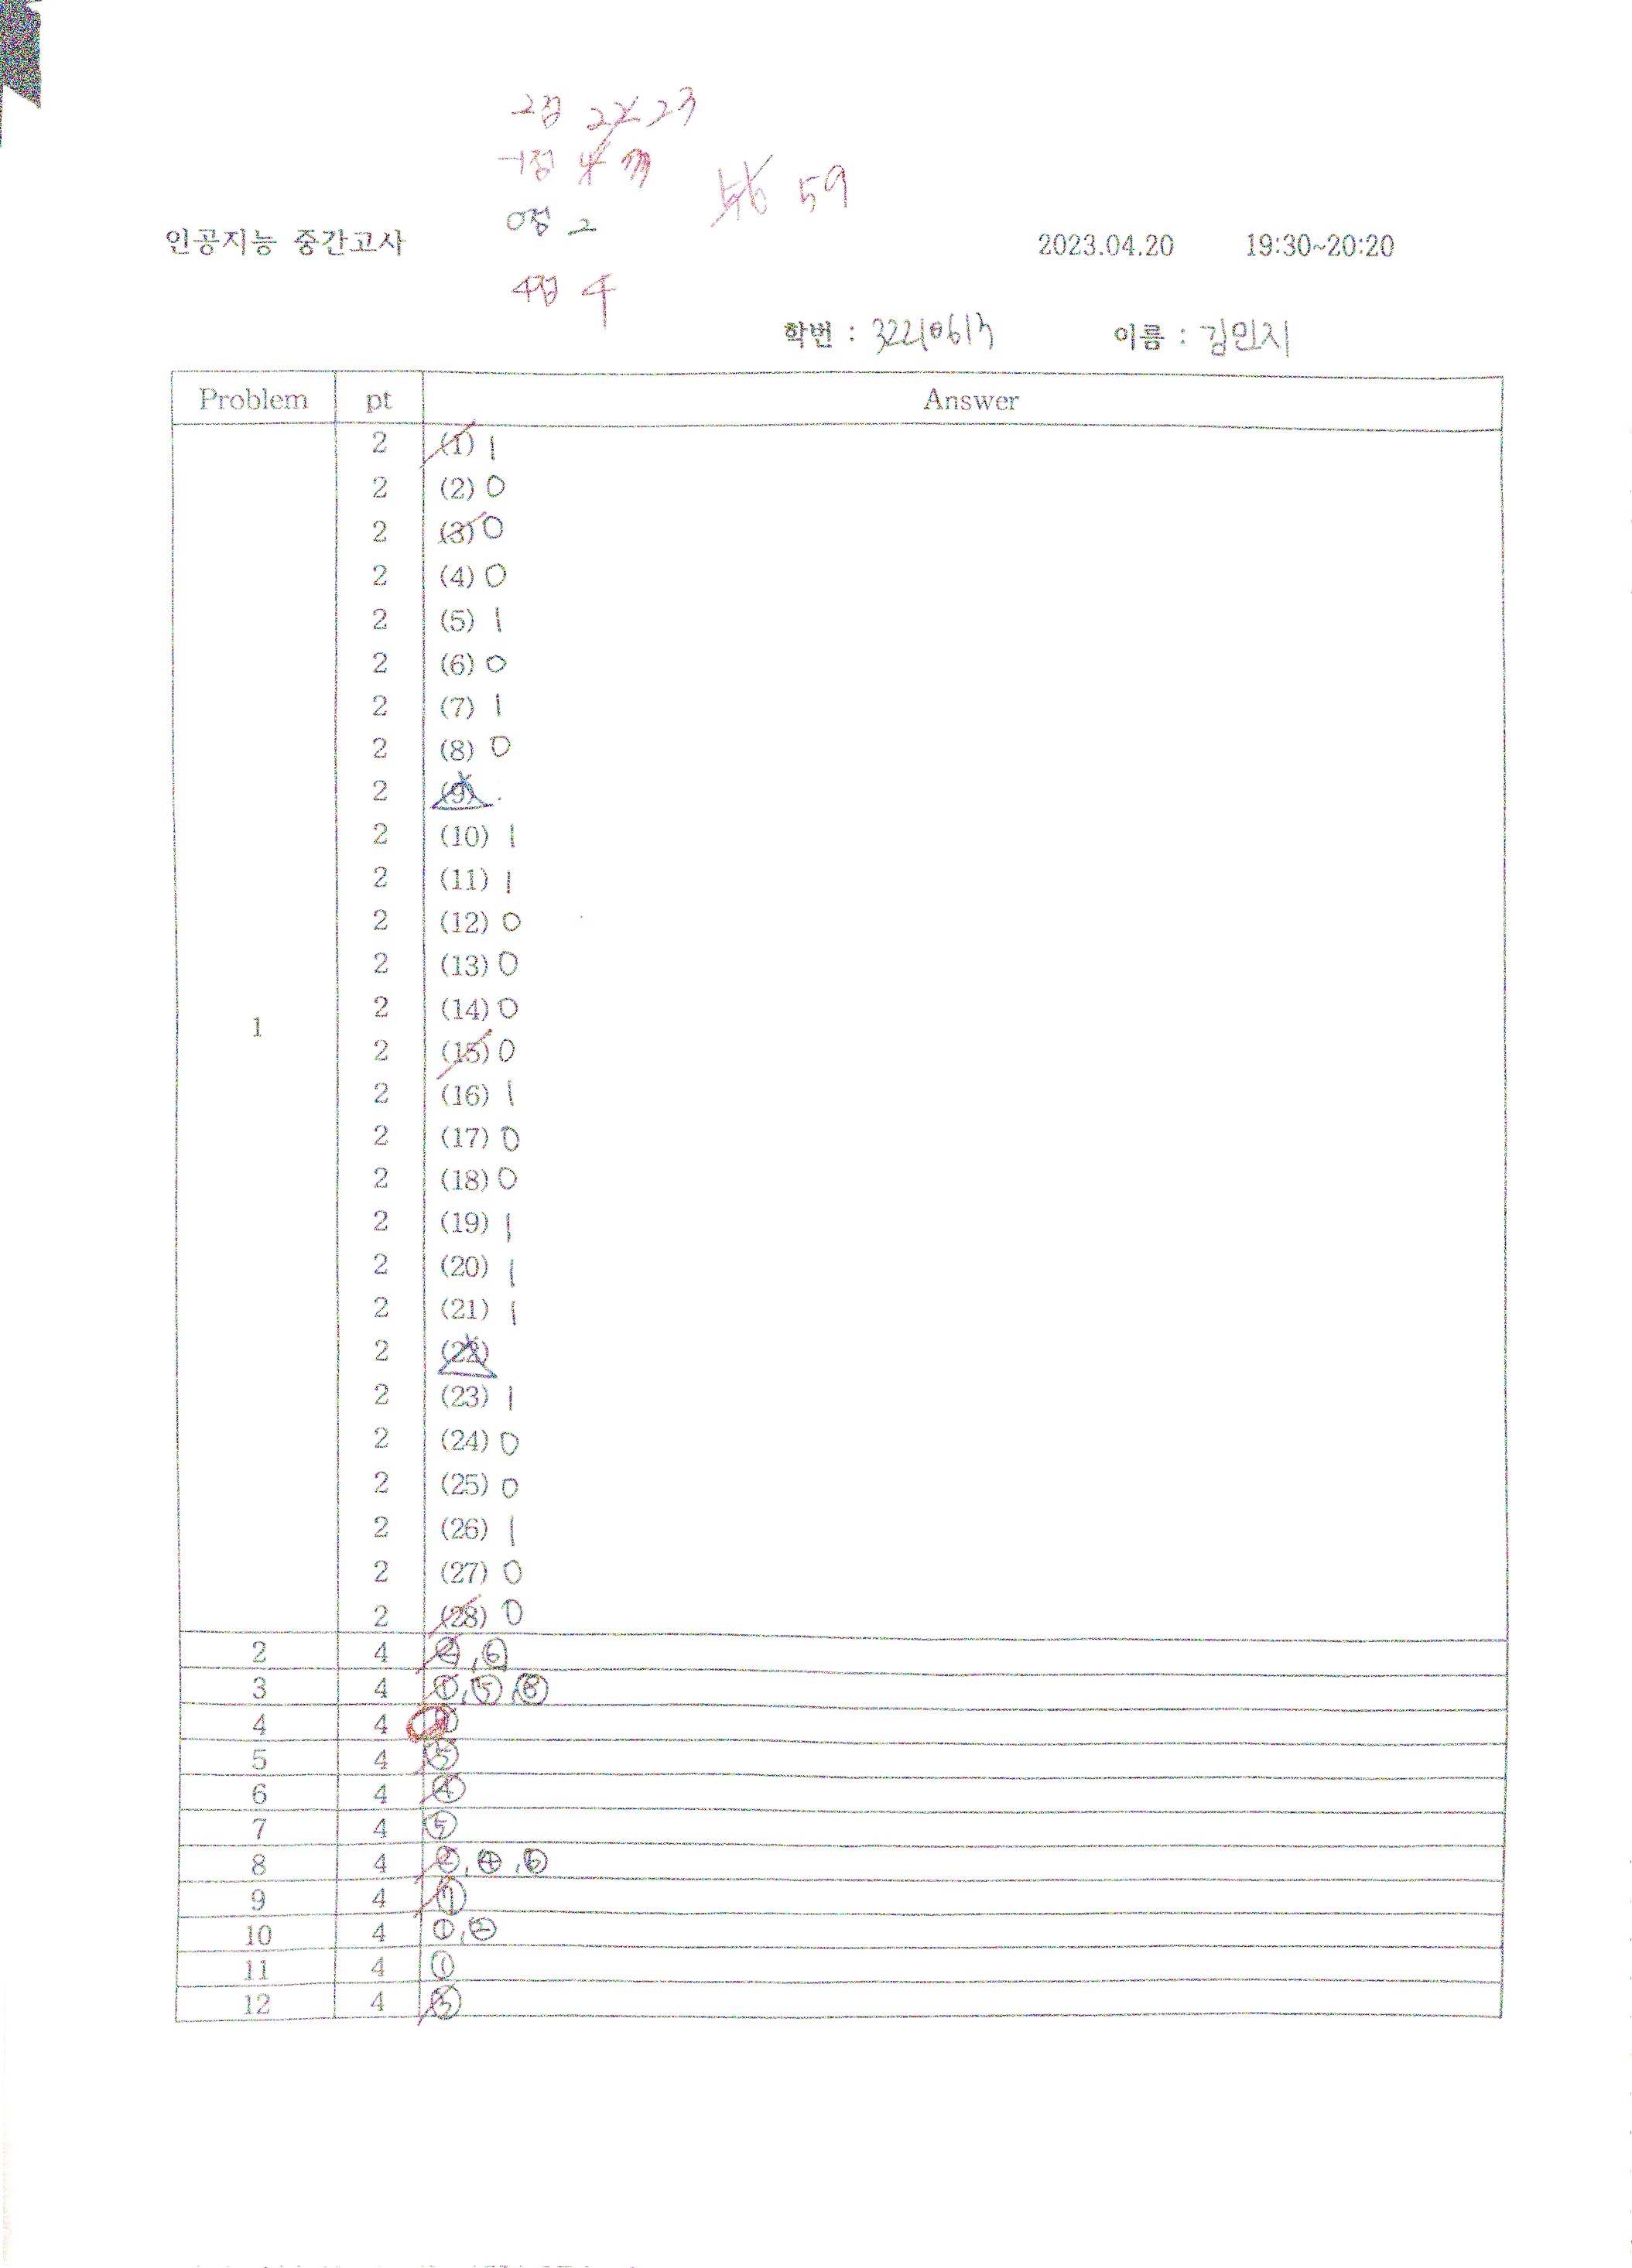 2점 22 23
-1점 4 3
0점 2
56 59
인공지능 중간고사 2023.04.20 19:30~20:20
4점 4
학번 : 이름 : 김민지
Problem pt Answer
2 (1) 1
2 (2) 0
2 (3) 0
2 (4) 0
2 (5) 1
2 (6) 0
2 (7) 1
2 (8) 0
2 (9)
2 (10) 1
2 (11) 1
2 (12) 0
2 (13) 0
2 (14) 0
1
2 (15) 0
2 (16) 1
2 (17) 0
2 (18) 0
2 (19) 1
2 (20) 1
2 (21) 1
2 (22)
2 (23) 1
2 (24) 0
2 (25) 0
2 (26) 1
2 (27) 0
2 (28) 0
2 4 ②,⑥
3 4 ①,⑤,⑥
4 4 ①
5 4 ⑤
6 4 ④
7 4 ⑤
8 4 ②,④,⑤
9 4 ①
10 4 ①,②
11 4 ①
12 4 ③